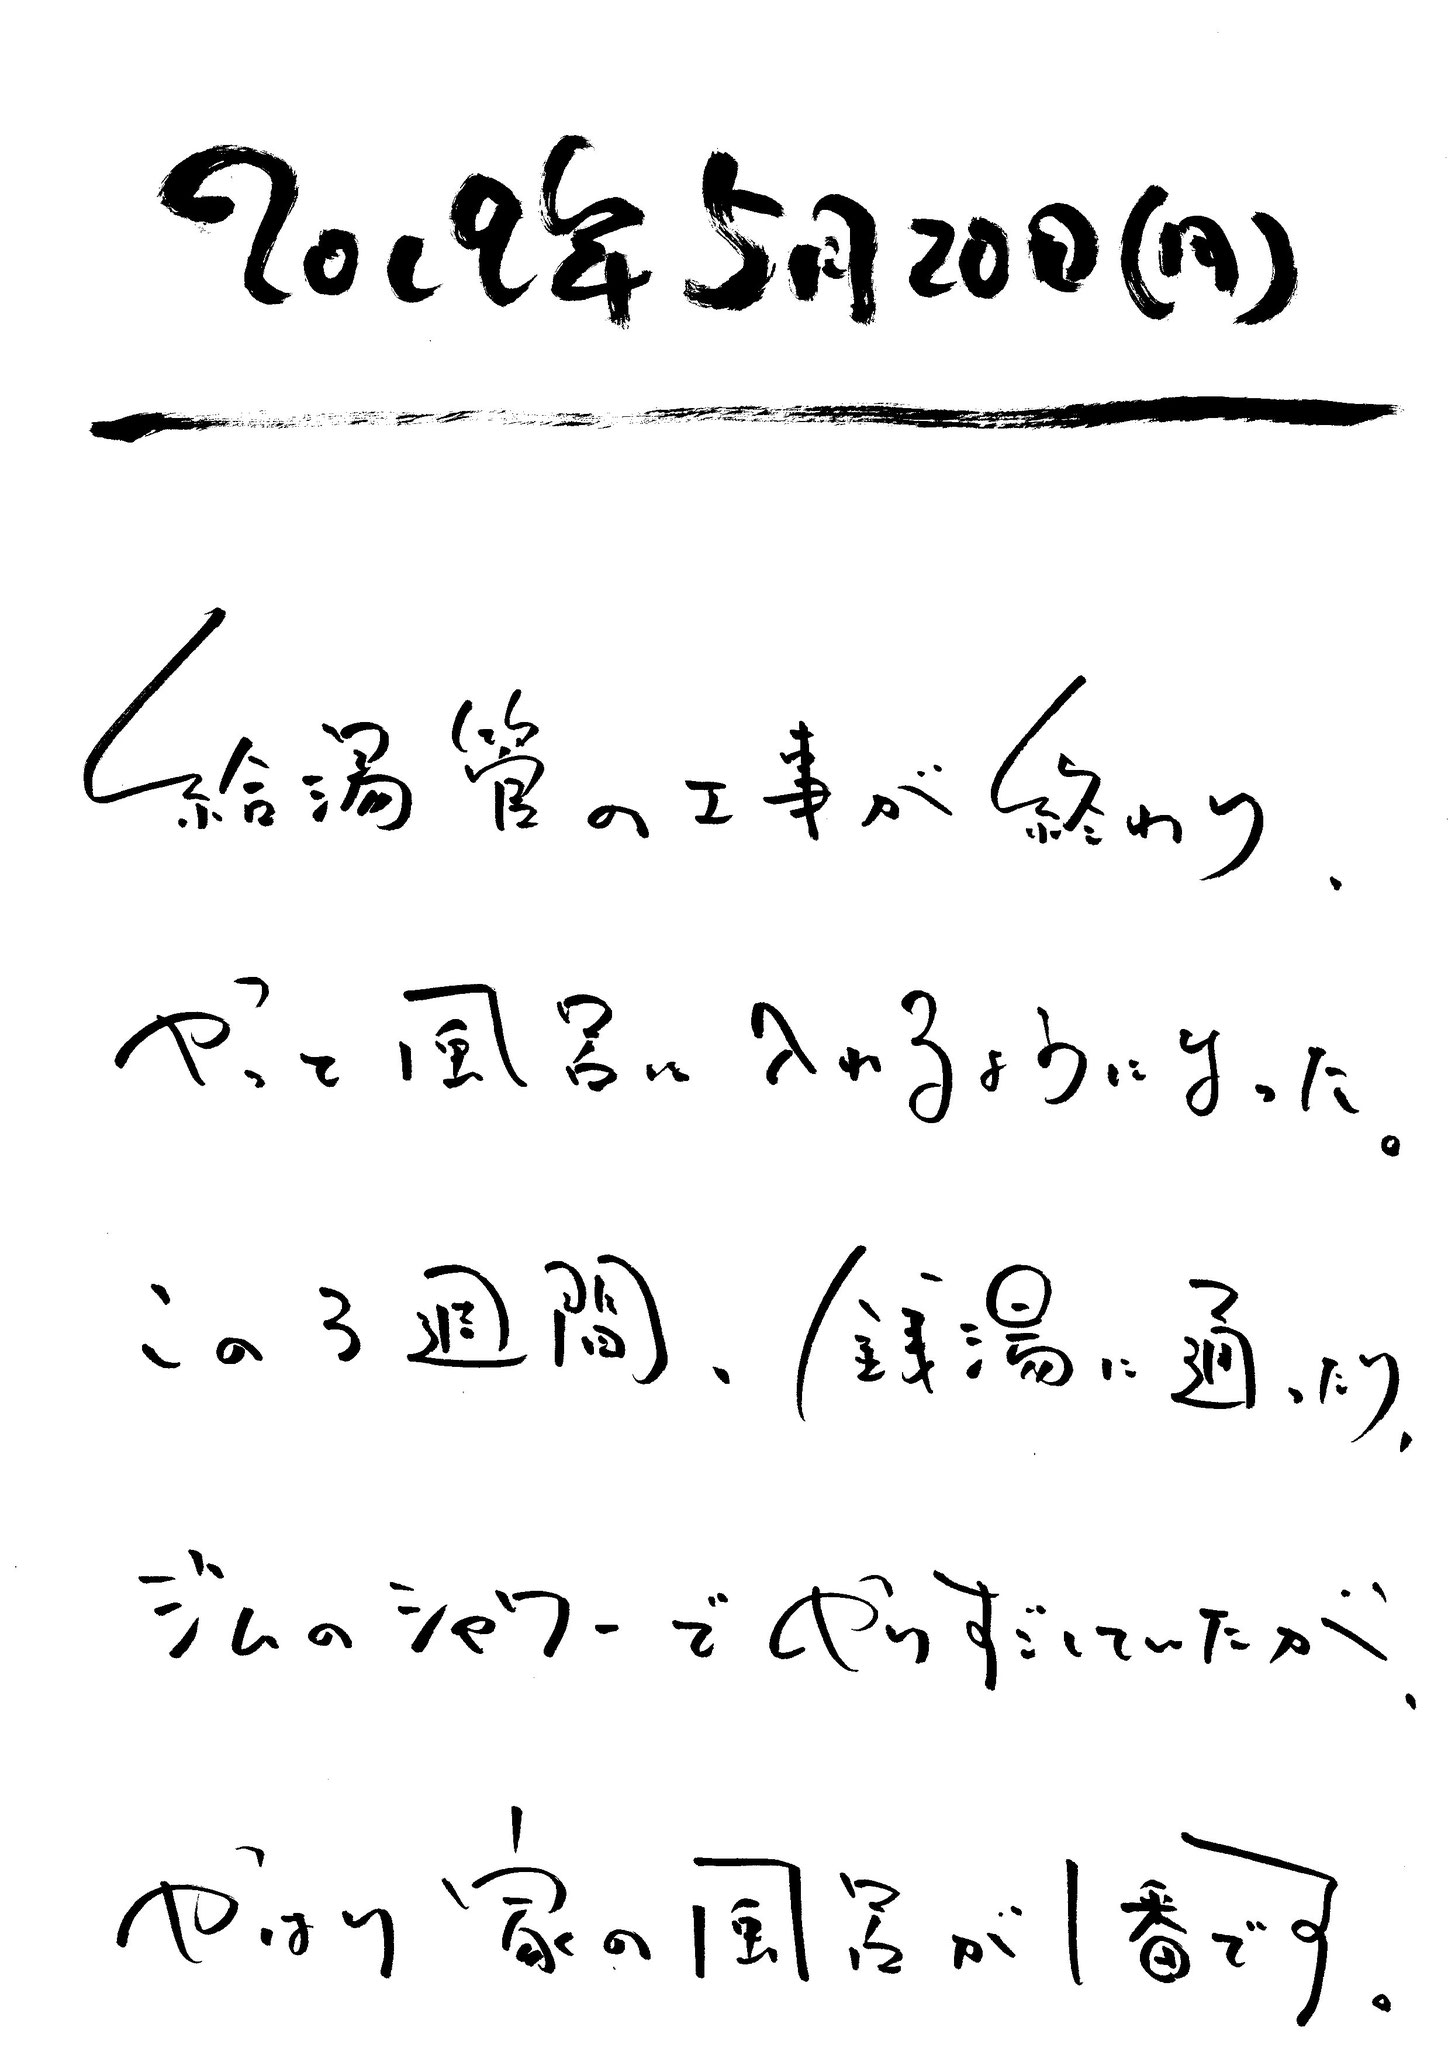 2019年5月20日(月)
給湯管の工事が終わり、
やっと風呂に入れるようになった。
この3週間、銭湯に通ったり、
ジムのシャワーでやりすごしていたが、
やはり家の風呂が1番です。